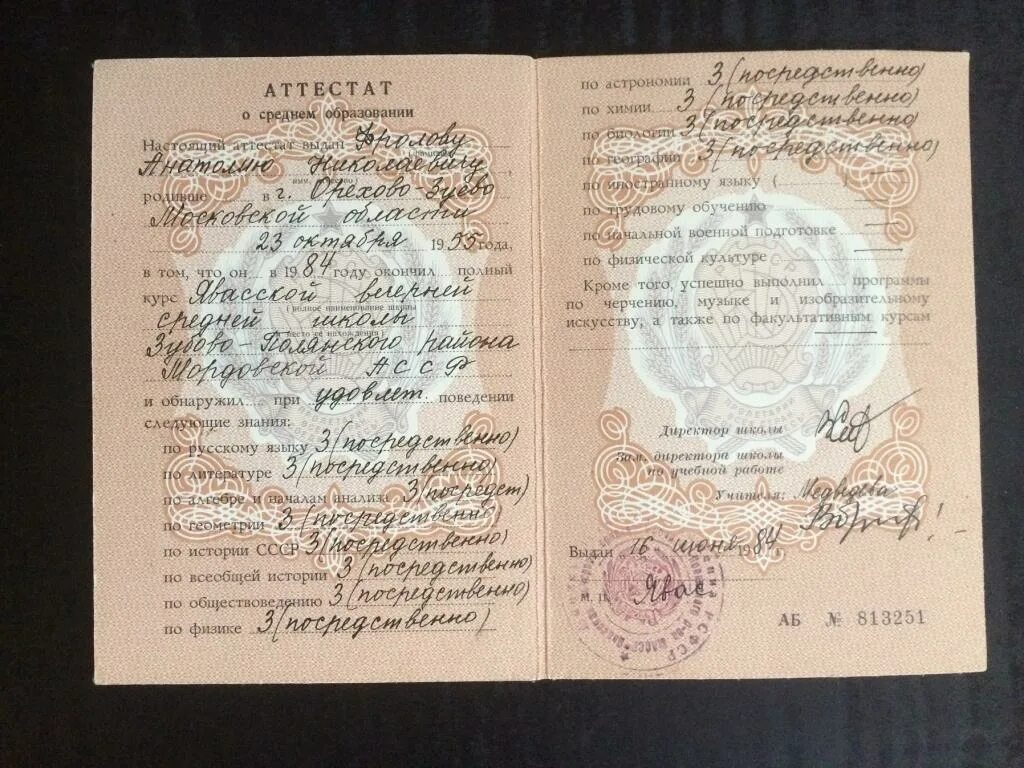 АТТЕСТАТ
о среднем образовании
Настоящий аттестат выдан Фролову
Анатолию Николаевичу,
родившемуся в г. Орехово-Зуево
Московской области
23 октября 1955 года,
в том, что он в 1984 году окончил полный
курс Явасской вечерней
(полное наименование школы
средней школы
место ее нахождения)
Зубово-Полянского района
Мордовской АССР
и обнаружил при удовлет. поведении
следующие знания:
по русскому языку 3 (посредственно)
по литературе 3 (посредственно)
по алгебре и началам анализа 3 (посредст)
по геометрии 3 (посредственно)
по истории СССР 3 (посредственно)
по всеобщей истории 3 (посредственно)
по обществоведению 3 (посредственно)
по физике 3 (посредственно)
по астрономии 3 (посредственно)
по химии 3 (посредственно)
по биологии 3 (посредственно)
по географии 3 (посредственно)
по иностранному языку ( )
по трудовому обучению
по начальной военной подготовке
по физической культуре
Кроме того, успешно выполнил программы
по черчению, музыке и изобразительному
искусству, а также по факультативным курсам
Директор школы
Зам. директора школы
по учебной работе
Учителя: Медведева
Выдан 16 июня 1984 г.
М. П. Явас
АБ № 813251